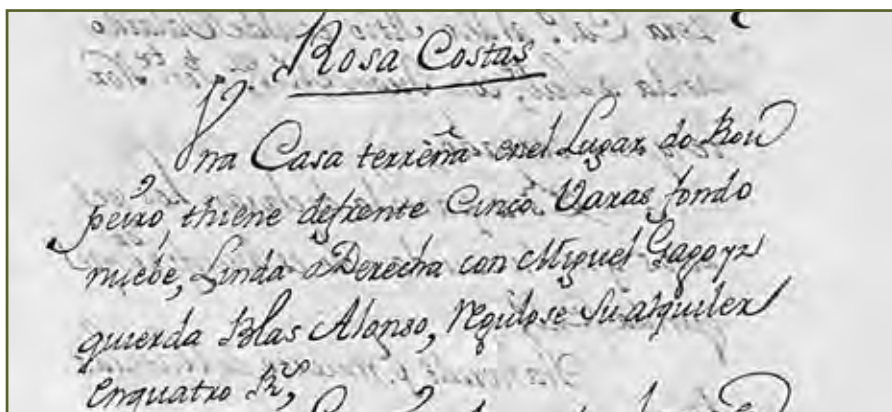 Rosa Costas
Vna Casa terrēna enel Lugar do Rou
peiro, thiene defrente Cinco Varas fondo
nuebe, Linda a Derecha con Miguel Gago yz
quierda Blas Alonso, regulose su alquiler
enquatro Rs,